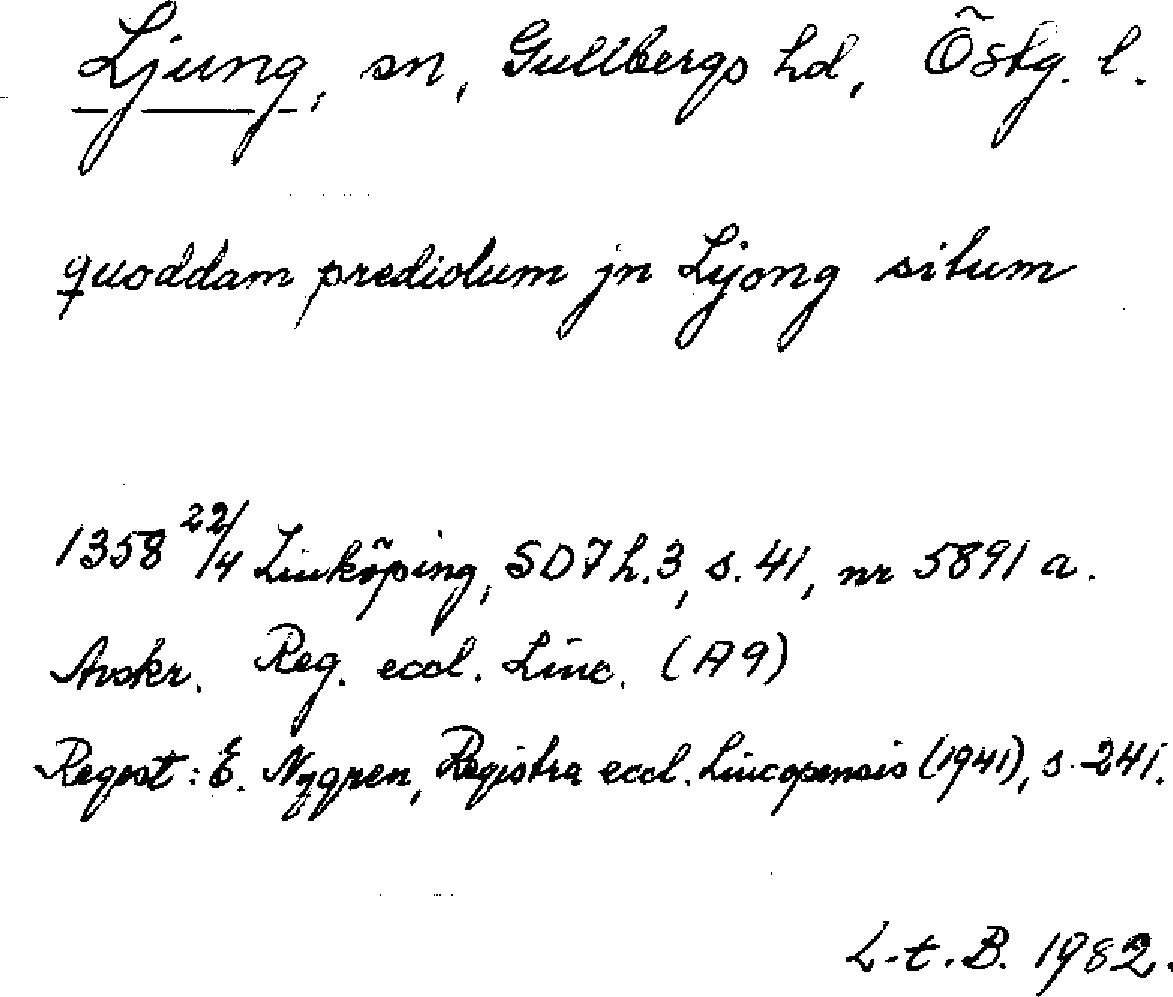 Ljung, sn, Gullbergs hd, Östg. l.
quoddam prediolum jn Lyong situm
1358 22/4 Linköping, SD 7 h. 3, s. 41, nr 5891 a.
Avskr. Reg. eccl. Linc. (A 9)
Regest: E. Nygren, Registra eccl. Lincopensis (1941), s. 241.
L-t. B. 1982.